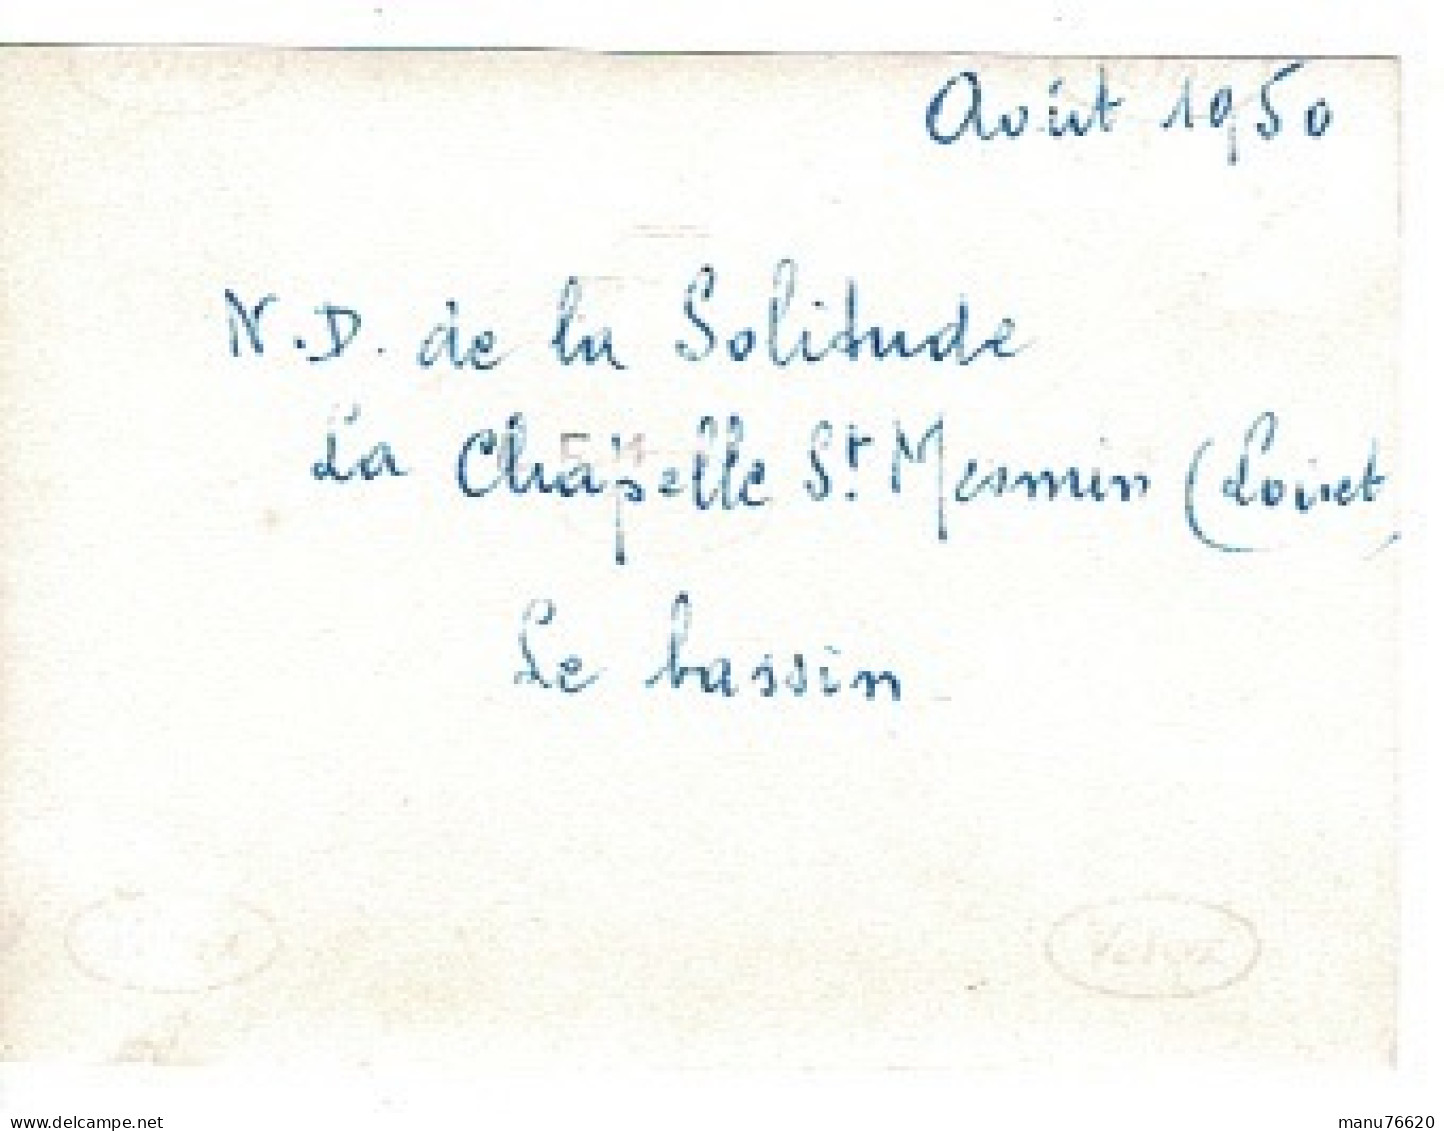 Août 1950
N.D. de la Solitude
La Chapelle St. Mesmin (Loiret)
Le bassin
Velox
www.delcampe.net
manu76620